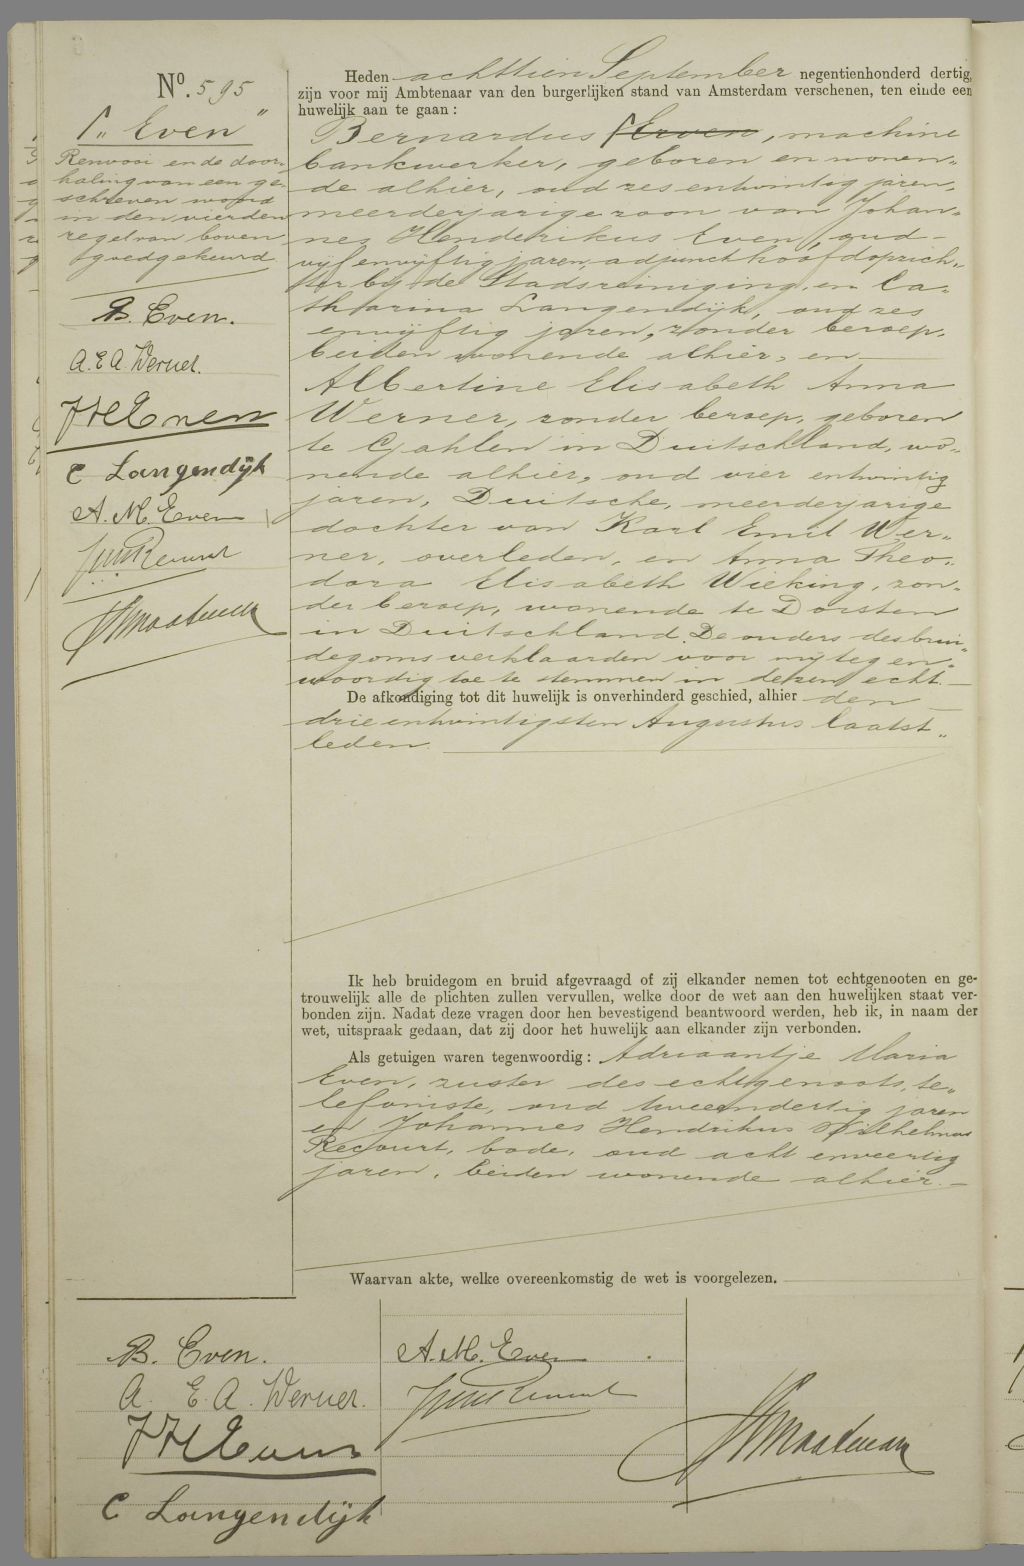 Nº. 595
⌈„ Even ”
Renvooi en de door-
haling van een ge-
schreven woord
in den vierden
regel van boven
goedgekeurd
B. Even.
A. E. A. Werner.
J H Even
C Langendijk
A. M. Even
Heden achttien September negentienhonderd dertig,
zijn voor mij Ambtenaar van den burgerlijken stand van Amsterdam verschenen, ten einde een
huwelijk aan te gaan:
Bernardus ⌈Erven, machine
bankwerker, geboren en wonen„
de alhier, oud zes entwintig jaren,
meerderjarige zoon van Johan„
nes Henderikus Even, oud
vijfenvijftig jaren, adjunct hoofdoprich„
ter bij de Stadsreiniging, en Ca„
tharina Langendijk, oud zes
envijftig jaren, zonder beroep,
beiden wonende alhier, en
Albertine Elisabeth Anna
Werner, zonder beroep, geboren
te Gahlen in Duitschland, wo„
nende alhier, oud vier entwintig
jaren, Duitsche, meerderjarige
dochter van Karl Emil Wer„
ner, overleden, en Anna Theo„
dora Elisabeth Wieking, zon„
der beroep, wonende te Dorsten
in Duitschland. De ouders des brui„
degoms verklaarden voor mij tegen„
woordig toe te stemmen in dezen echt.
De afkondiging tot dit huwelijk is onverhinderd geschied, alhier den
drieentwintigsten Augustus laatst„
leden.
Ik heb bruidegom en bruid afgevraagd of zij elkander nemen tot echtgenooten en ge-
trouwelijk alle de plichten zullen vervullen, welke door de wet aan den huwelijken staat ver-
bonden zijn. Nadat deze vragen door hen bevestigend beantwoord werden, heb ik, in naam der
wet, uitspraak gedaan, dat zij door het huwelijk aan elkander zijn verbonden.
Als getuigen waren tegenwoordig: Adriaantje Maria
Even, zuster des echtgenoots, te„
lefoniste, oud tweeendertig jaren
en Johannes Hendrikus Wilhelmus
Recourt, bode, oud acht enveertig
jaren, beiden wonende alhier.
Waarvan akte, welke overeenkomstig de wet is voorgelezen.
B. Even.
A. E. A. Werner.
J H Even
C Langendijk
A. M. Even